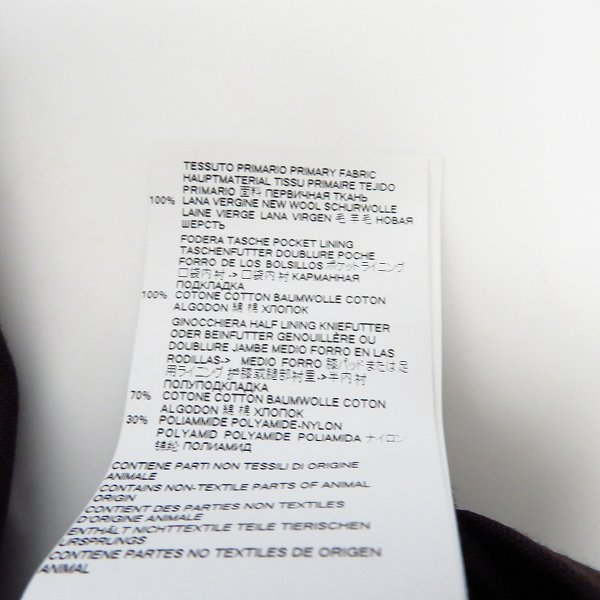 TESSUTO PRIMARIO PRIMARY FABRIC
HAUPTMATERIAL TISSU PRIMAIRE TEJIDO
PRIMARIO 面料 ПЕРВИЧНАЯ ТКАНЬ
100% LANA VERGINE NEW WOOL SCHURWOLLE
LAINE VIERGE LANA VIRGEN 毛 羊毛 НОВАЯ
ШЕРСТЬ
FODERA TASCHE POCKET LINING
TASCHENFUTTER DOUBLURE POCHE
FORRO DE LOS BOLSILLOS ポケットライニング
口袋内衬 -> 口袋内衬 КАРМАННАЯ
ПОДКЛАДКА
100% COTONE COTTON BAUMWOLLE COTON
ALGODON 綿 棉 ХЛОПОК
GINOCCHIERA HALF LINING KNIEFUTTER
ODER BEINFUTTER GENOUILLÈRE OU
DOUBLURE JAMBE MEDIO FORRO EN LAS
RODILLAS-> MEDIO FORRO 膝パッドまたは足
用ライニング 护膝或腿部衬里->半内衬
ПОЛУПОДКЛАДКА
70% COTONE COTTON BAUMWOLLE COTON
ALGODON 綿 棉 ХЛОПОК
30% POLIAMMIDE POLYAMIDE-NYLON
POLYAMID POLYAMIDE POLIAMIDA ナイロン
锦纶 ПОЛИАМИД
CONTIENE PARTI NON TESSILI DI ORIGINE
ANIMALE
CONTAINS NON-TEXTILE PARTS OF ANIMAL
ORIGIN
CONTIENT DES PARTIES NON TEXTILES
D'ORIGINE ANIMALE
ENTHÄLT NICHTTEXTILE TEILE TIERISCHEN
URSPRUNGS
CONTIENE PARTES NO TEXTILES DE ORIGEN
ANIMAL